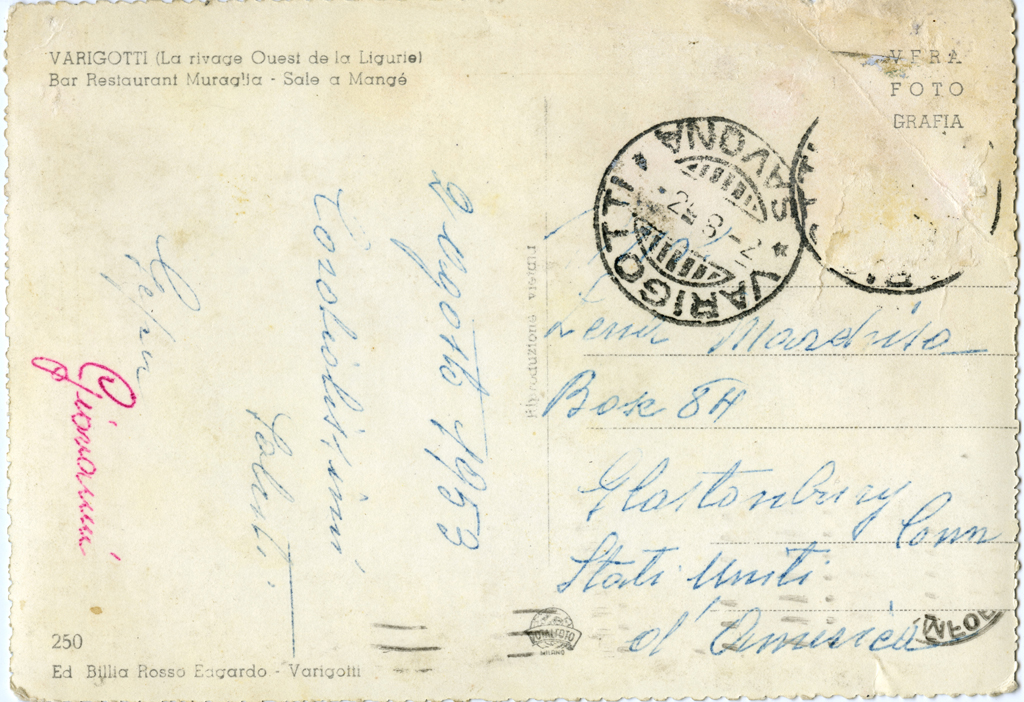 VARIGOTTI (La rivage Ouest de la Ligurie)
Bar Restaurant Muraglia - Sale a Mangé
VERA
FOTO
GRAFIA
VARIGOTTI ★ SAVONA ★
2 agosto 1953
Saluti
Giovanni
Riproduzione vietata
Mardrisa
Box 84
Glastonbury
Conn
Stati Uniti
d'America
250
Ed Billia Rosso Edgardo - Varigotti
MILANO